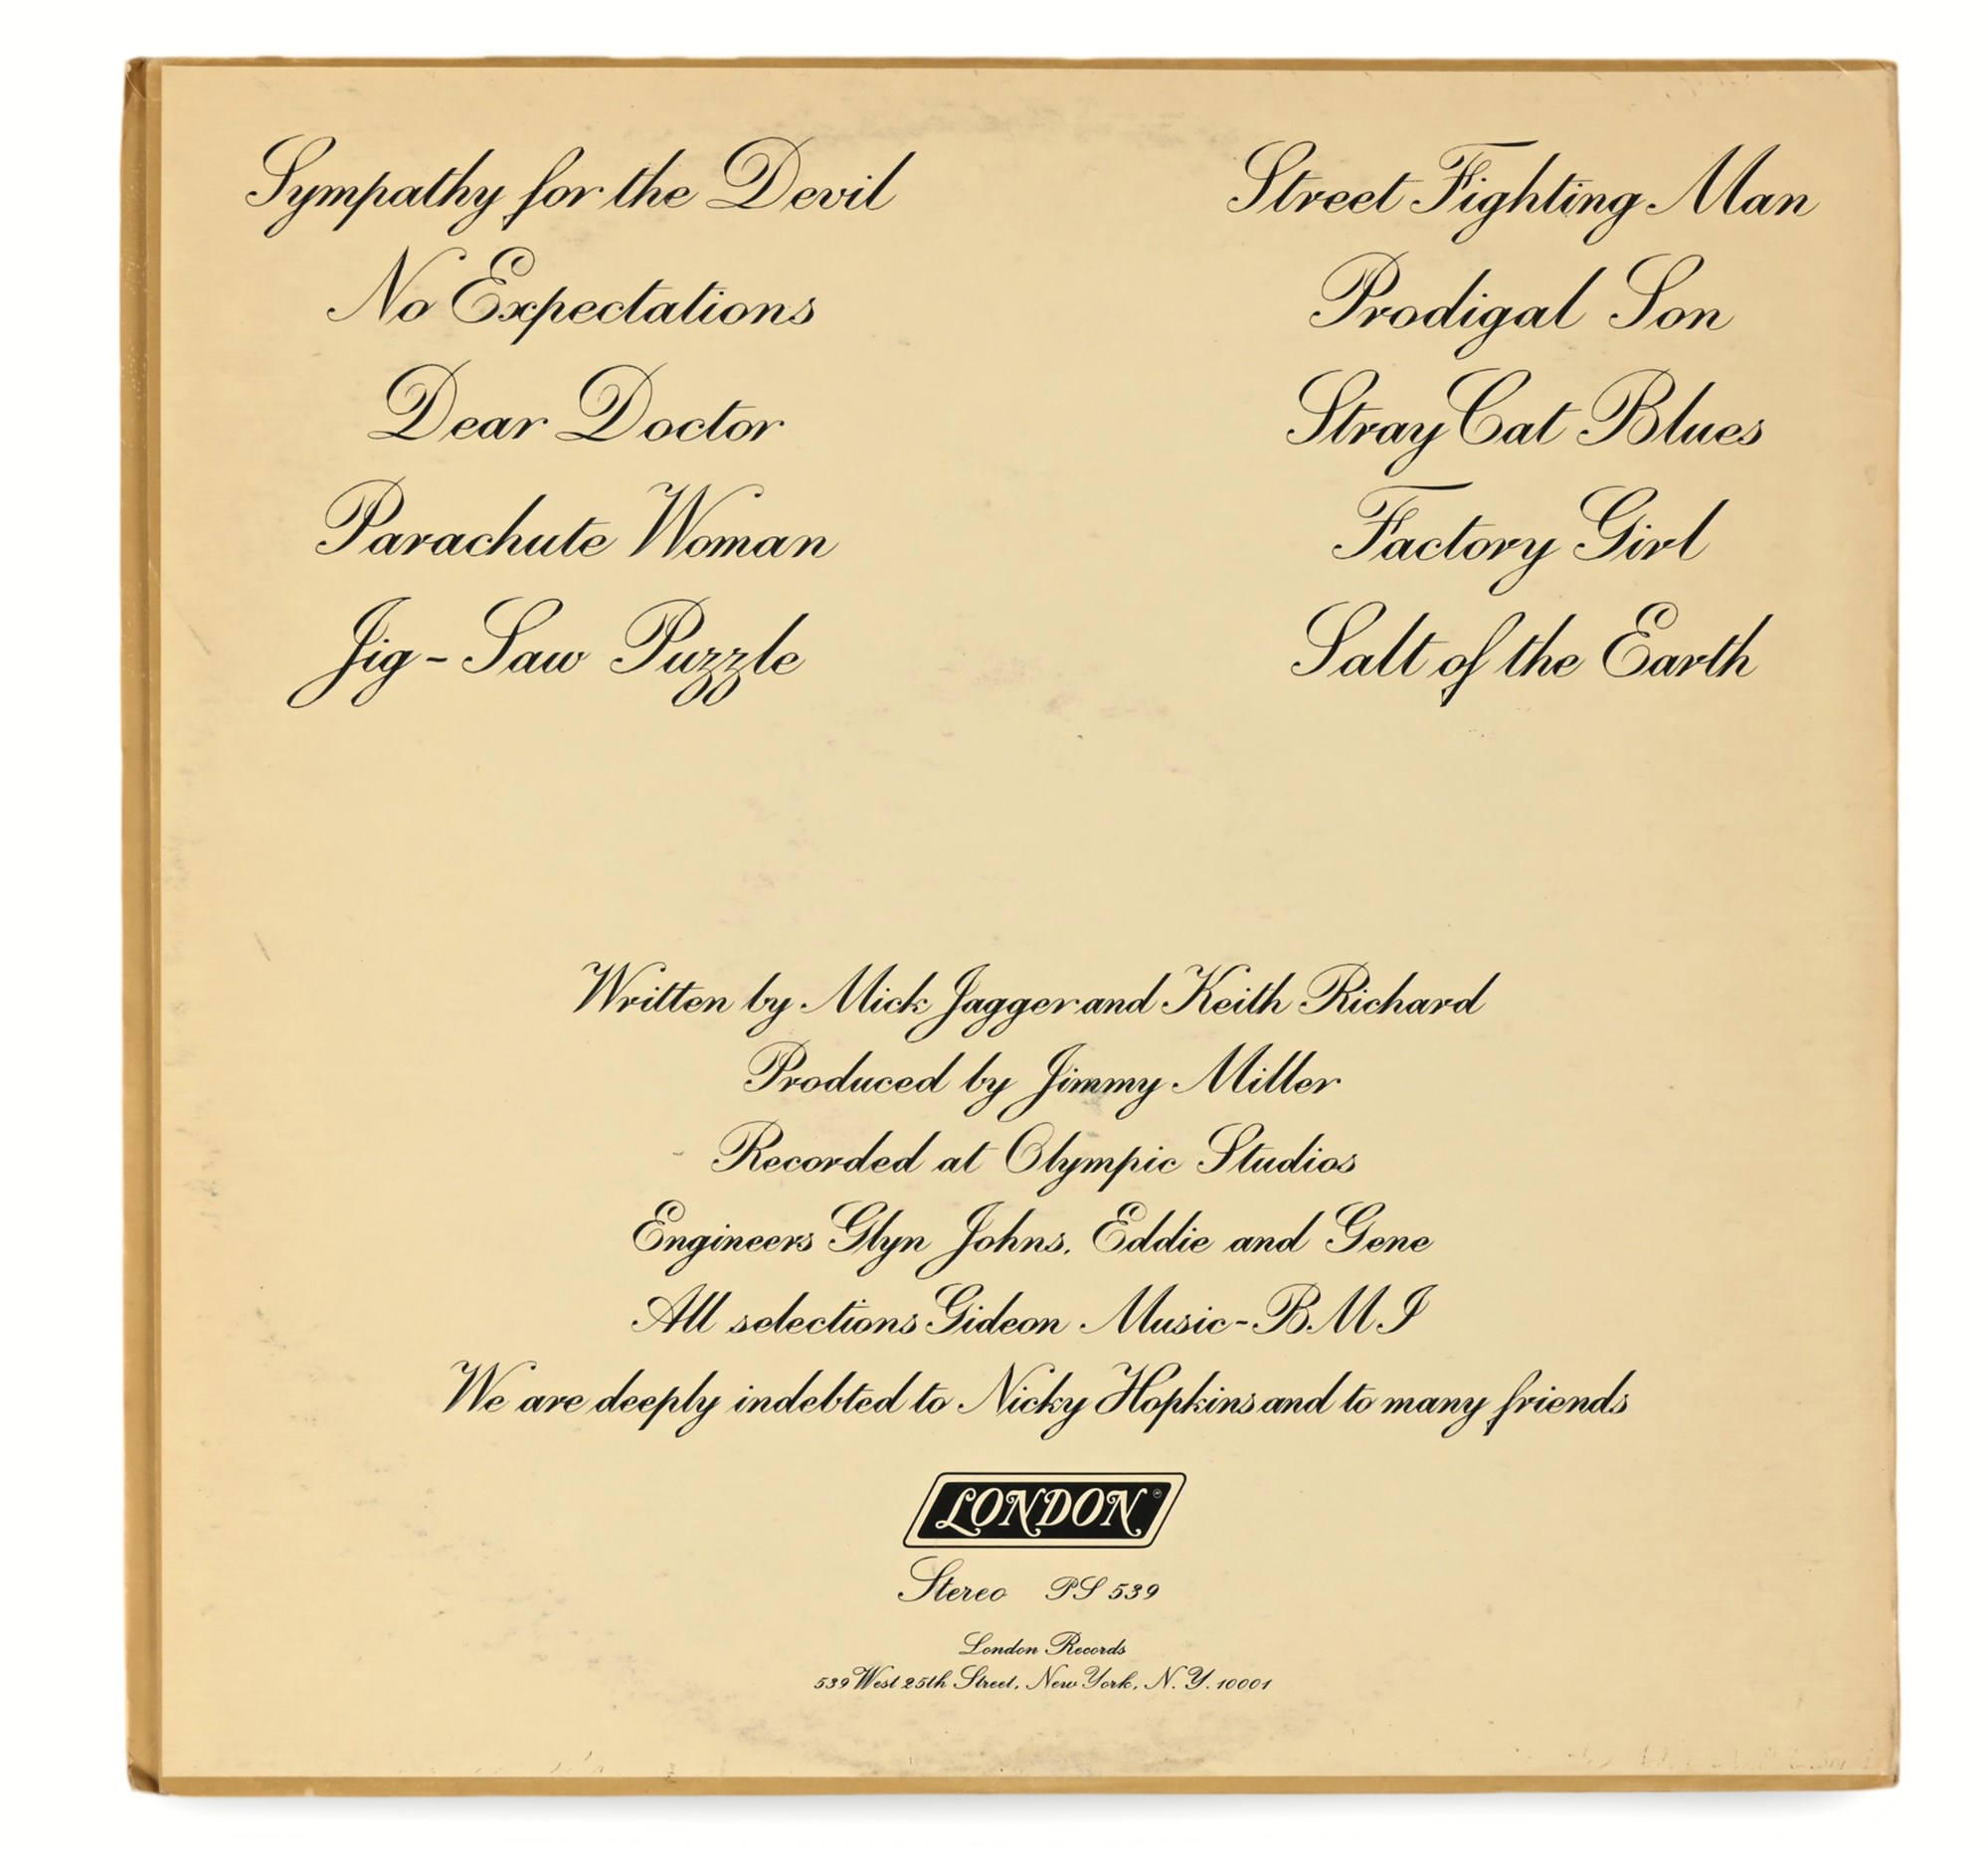 Sympathy for the Devil
No Expectations
Dear Doctor
Parachute Woman
Jig-Saw Puzzle
Street Fighting Man
Prodigal Son
Stray Cat Blues
Factory Girl
Salt of the Earth
Written by Mick Jagger and Keith Richard
Produced by Jimmy Miller
Recorded at Olympic Studios
Engineers Glyn Johns, Eddie and Gene
All selections Gideon Music-BMI
We are deeply indebted to Nicky Hopkins and to many friends
LONDON®
Stereo PS 539
London Records
539 West 25th Street, New York, N. Y. 10001